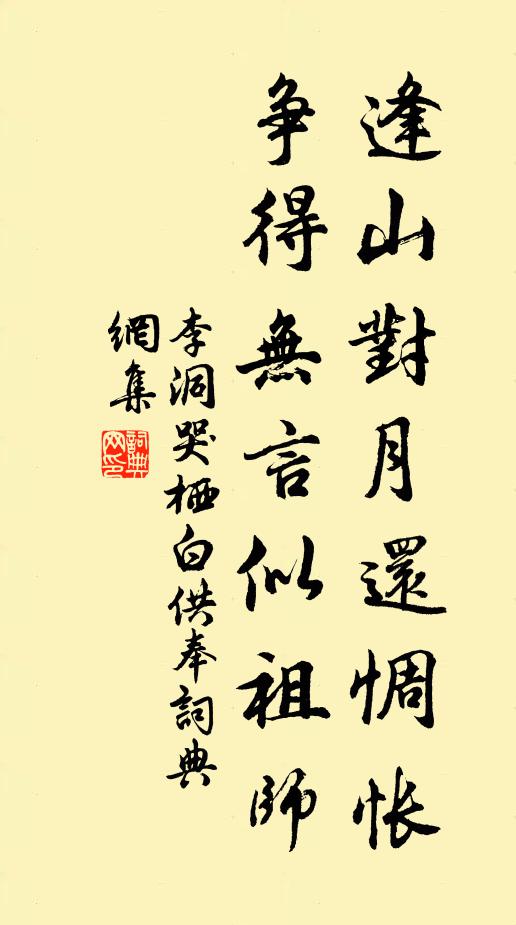 逢山對月還惆悵
争得無言似祖師
李洞哭栖白供奉詞典
網集
詞典網印